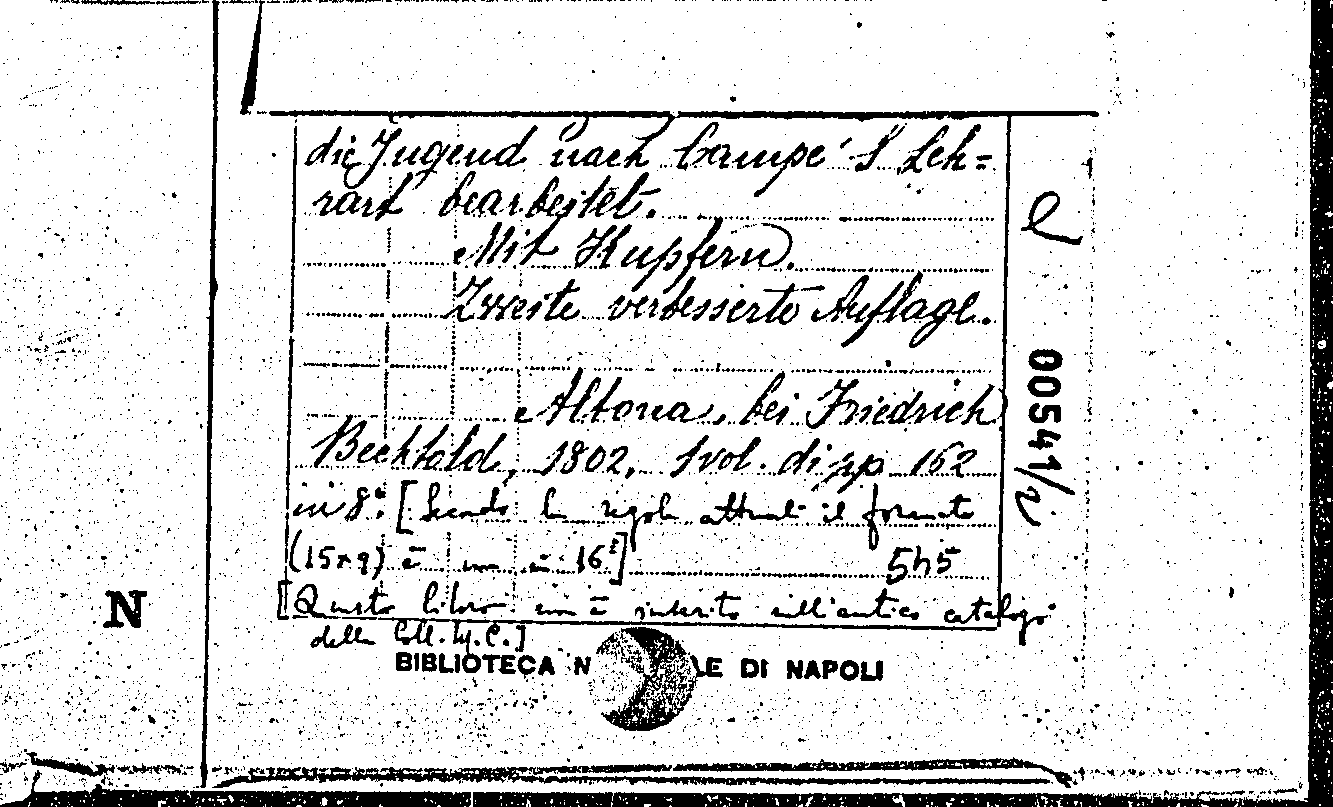 die Jugend nach Campe's Leh=
rart bearbeitet.
Mit Kupfern.
Zweite verbesserte Auflage.
Altona, bei Friedrich
Bechtold, 1802, 1 vol. di pp 162
in 8°. [Secondo le regole attuali il formato
(15x9) è un in 16°] 545
[Questo libro non è inserito nell'antico catalogo
della Coll. L. C.]
BIBLIOTECA N LE DI NAPOLI
N
e
00541/2